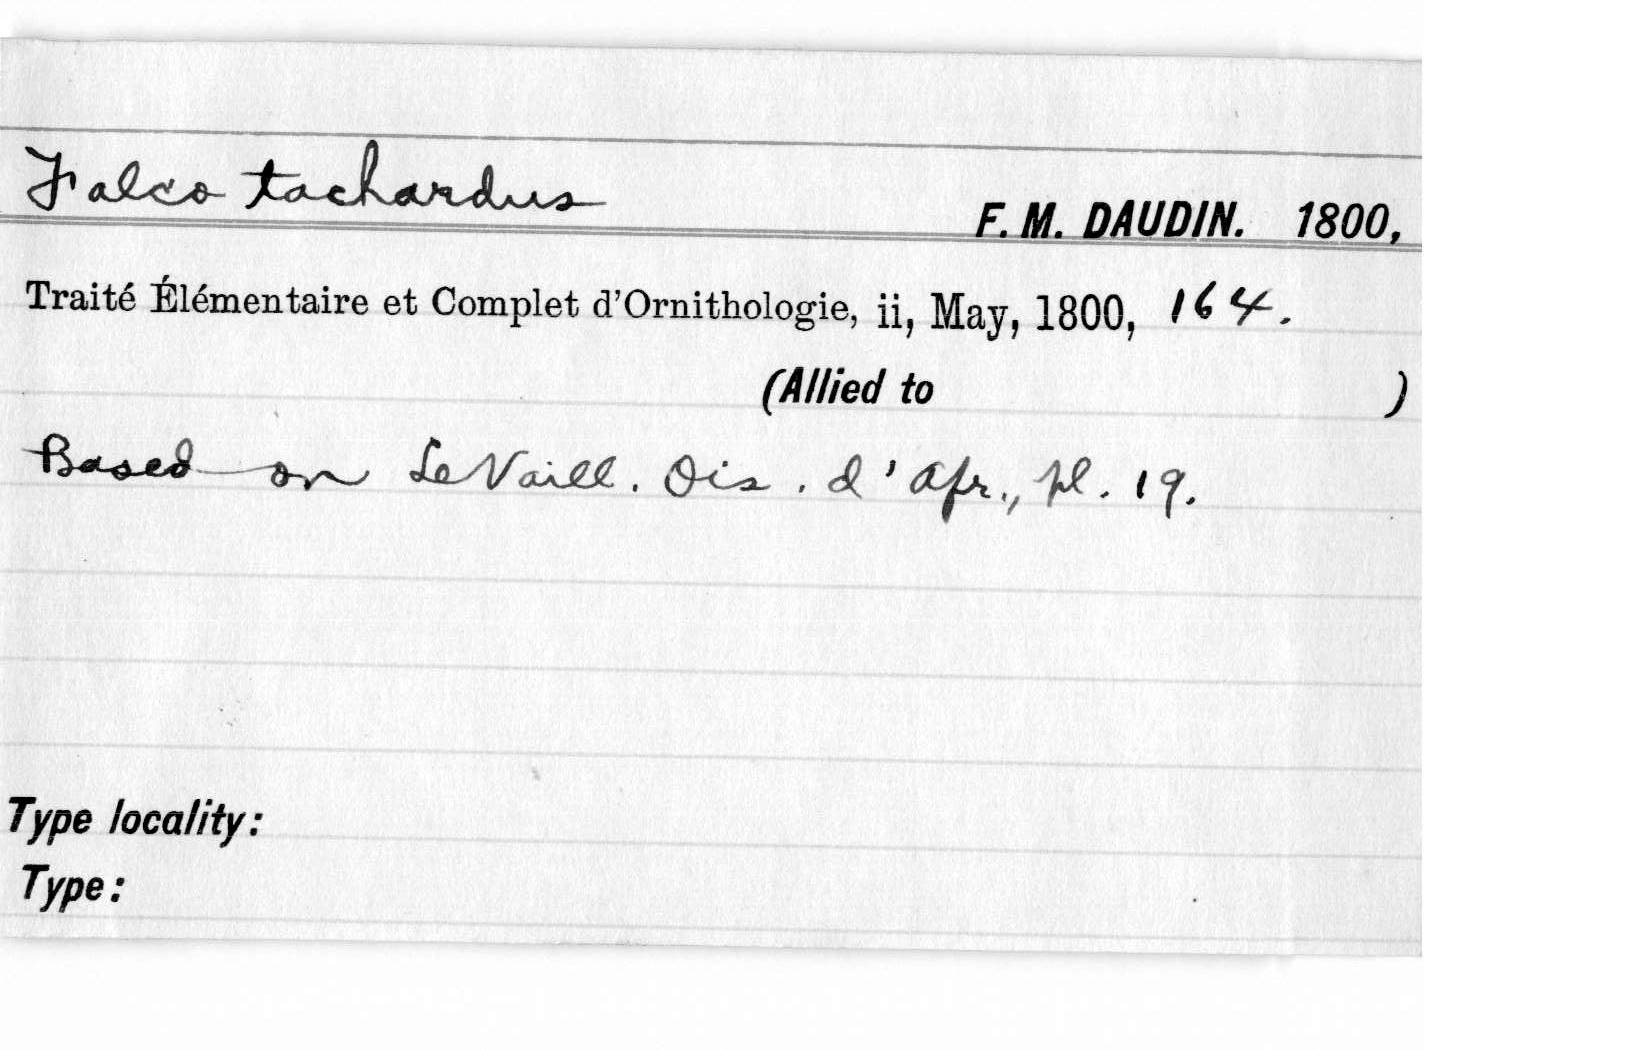 Falco tachardus
F. M. DAUDIN. 1800,
Traité Élémentaire et Complet d'Ornithologie, ii, May, 1800, 164.
(Allied to )
Based on LeVaill. Ois. d'Afr., pl. 19.
Type locality:
Type: